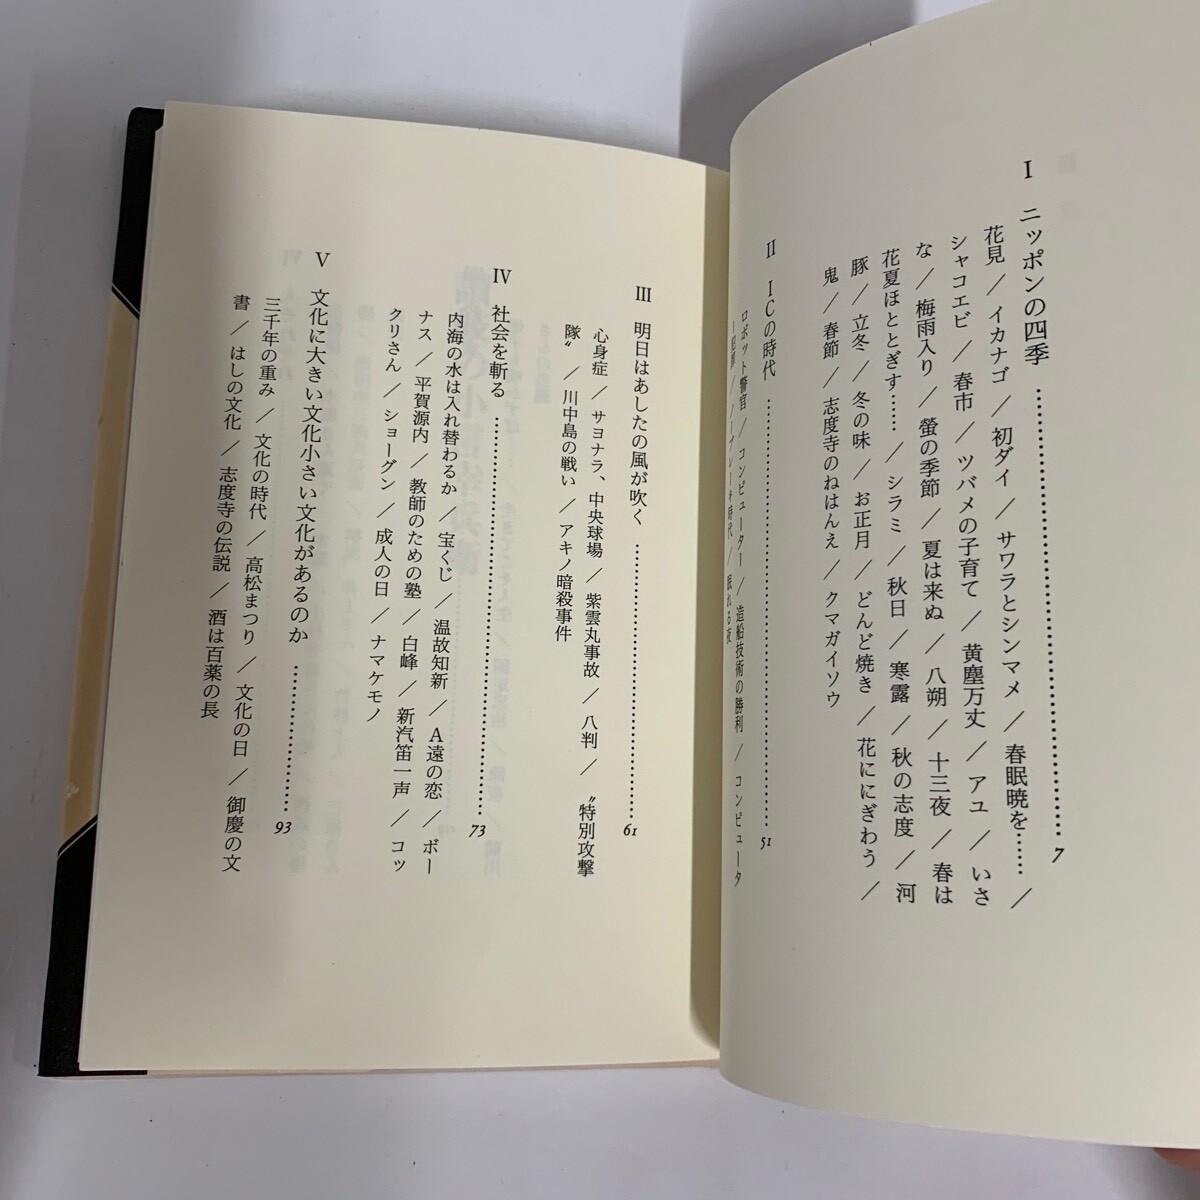 I ニッポンの四季 …… 7
花見／イカナゴ／初ダイ／サワラとシンマメ／春眠暁を……／
シャコエビ／春市／ツバメの子育て／黄塵万丈／アユ／いさ
な／梅雨入り／螢の季節／夏は来ぬ／八朔／十三夜／春は
花夏ほととぎす……／シラミ／秋日／寒露／秋の志度／河
豚／立冬／冬の味／お正月／どんど焼き／花ににぎわう／
鬼／春節／志度寺のねはんえ／クマガイソウ
II ICの時代 …… 51
ロボット警官／コンピューター／造船技術の勝利／コンピュータ
ー犯罪／ノーブレーキ時代／眠れる夜
III 明日はあしたの風が吹く …… 61
心身症／サヨナラ、中央球場／紫雲丸事故／八判／〝特別攻撃
隊〟／川中島の戦い／アキノ暗殺事件
IV 社会を斬る …… 73
内海の水は入れ替わるか／宝くじ／温故知新／A遠の恋／ボー
ナス／平賀源内／教師のための塾／白峰／新汽笛一声／コッ
クリさん／ショーグン／成人の日／ナマケモノ
V 文化に大きい文化小さい文化があるのか …… 93
三千年の重み／文化の時代／高松まつり／文化の日／御慶の文
書／はしの文化／志度寺の伝説／酒は百薬の長